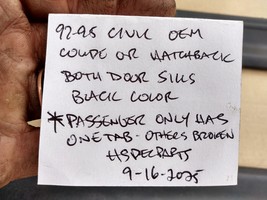 92-95 CIVIC OEM
COUPE OR HATCHBACK
BOTH DOOR SILLS
BLACK COLOR
*PASSENGER ONLY HAS
ONE TAB - OTHERS BROKEN
HSPECPARTS
9-16-2025